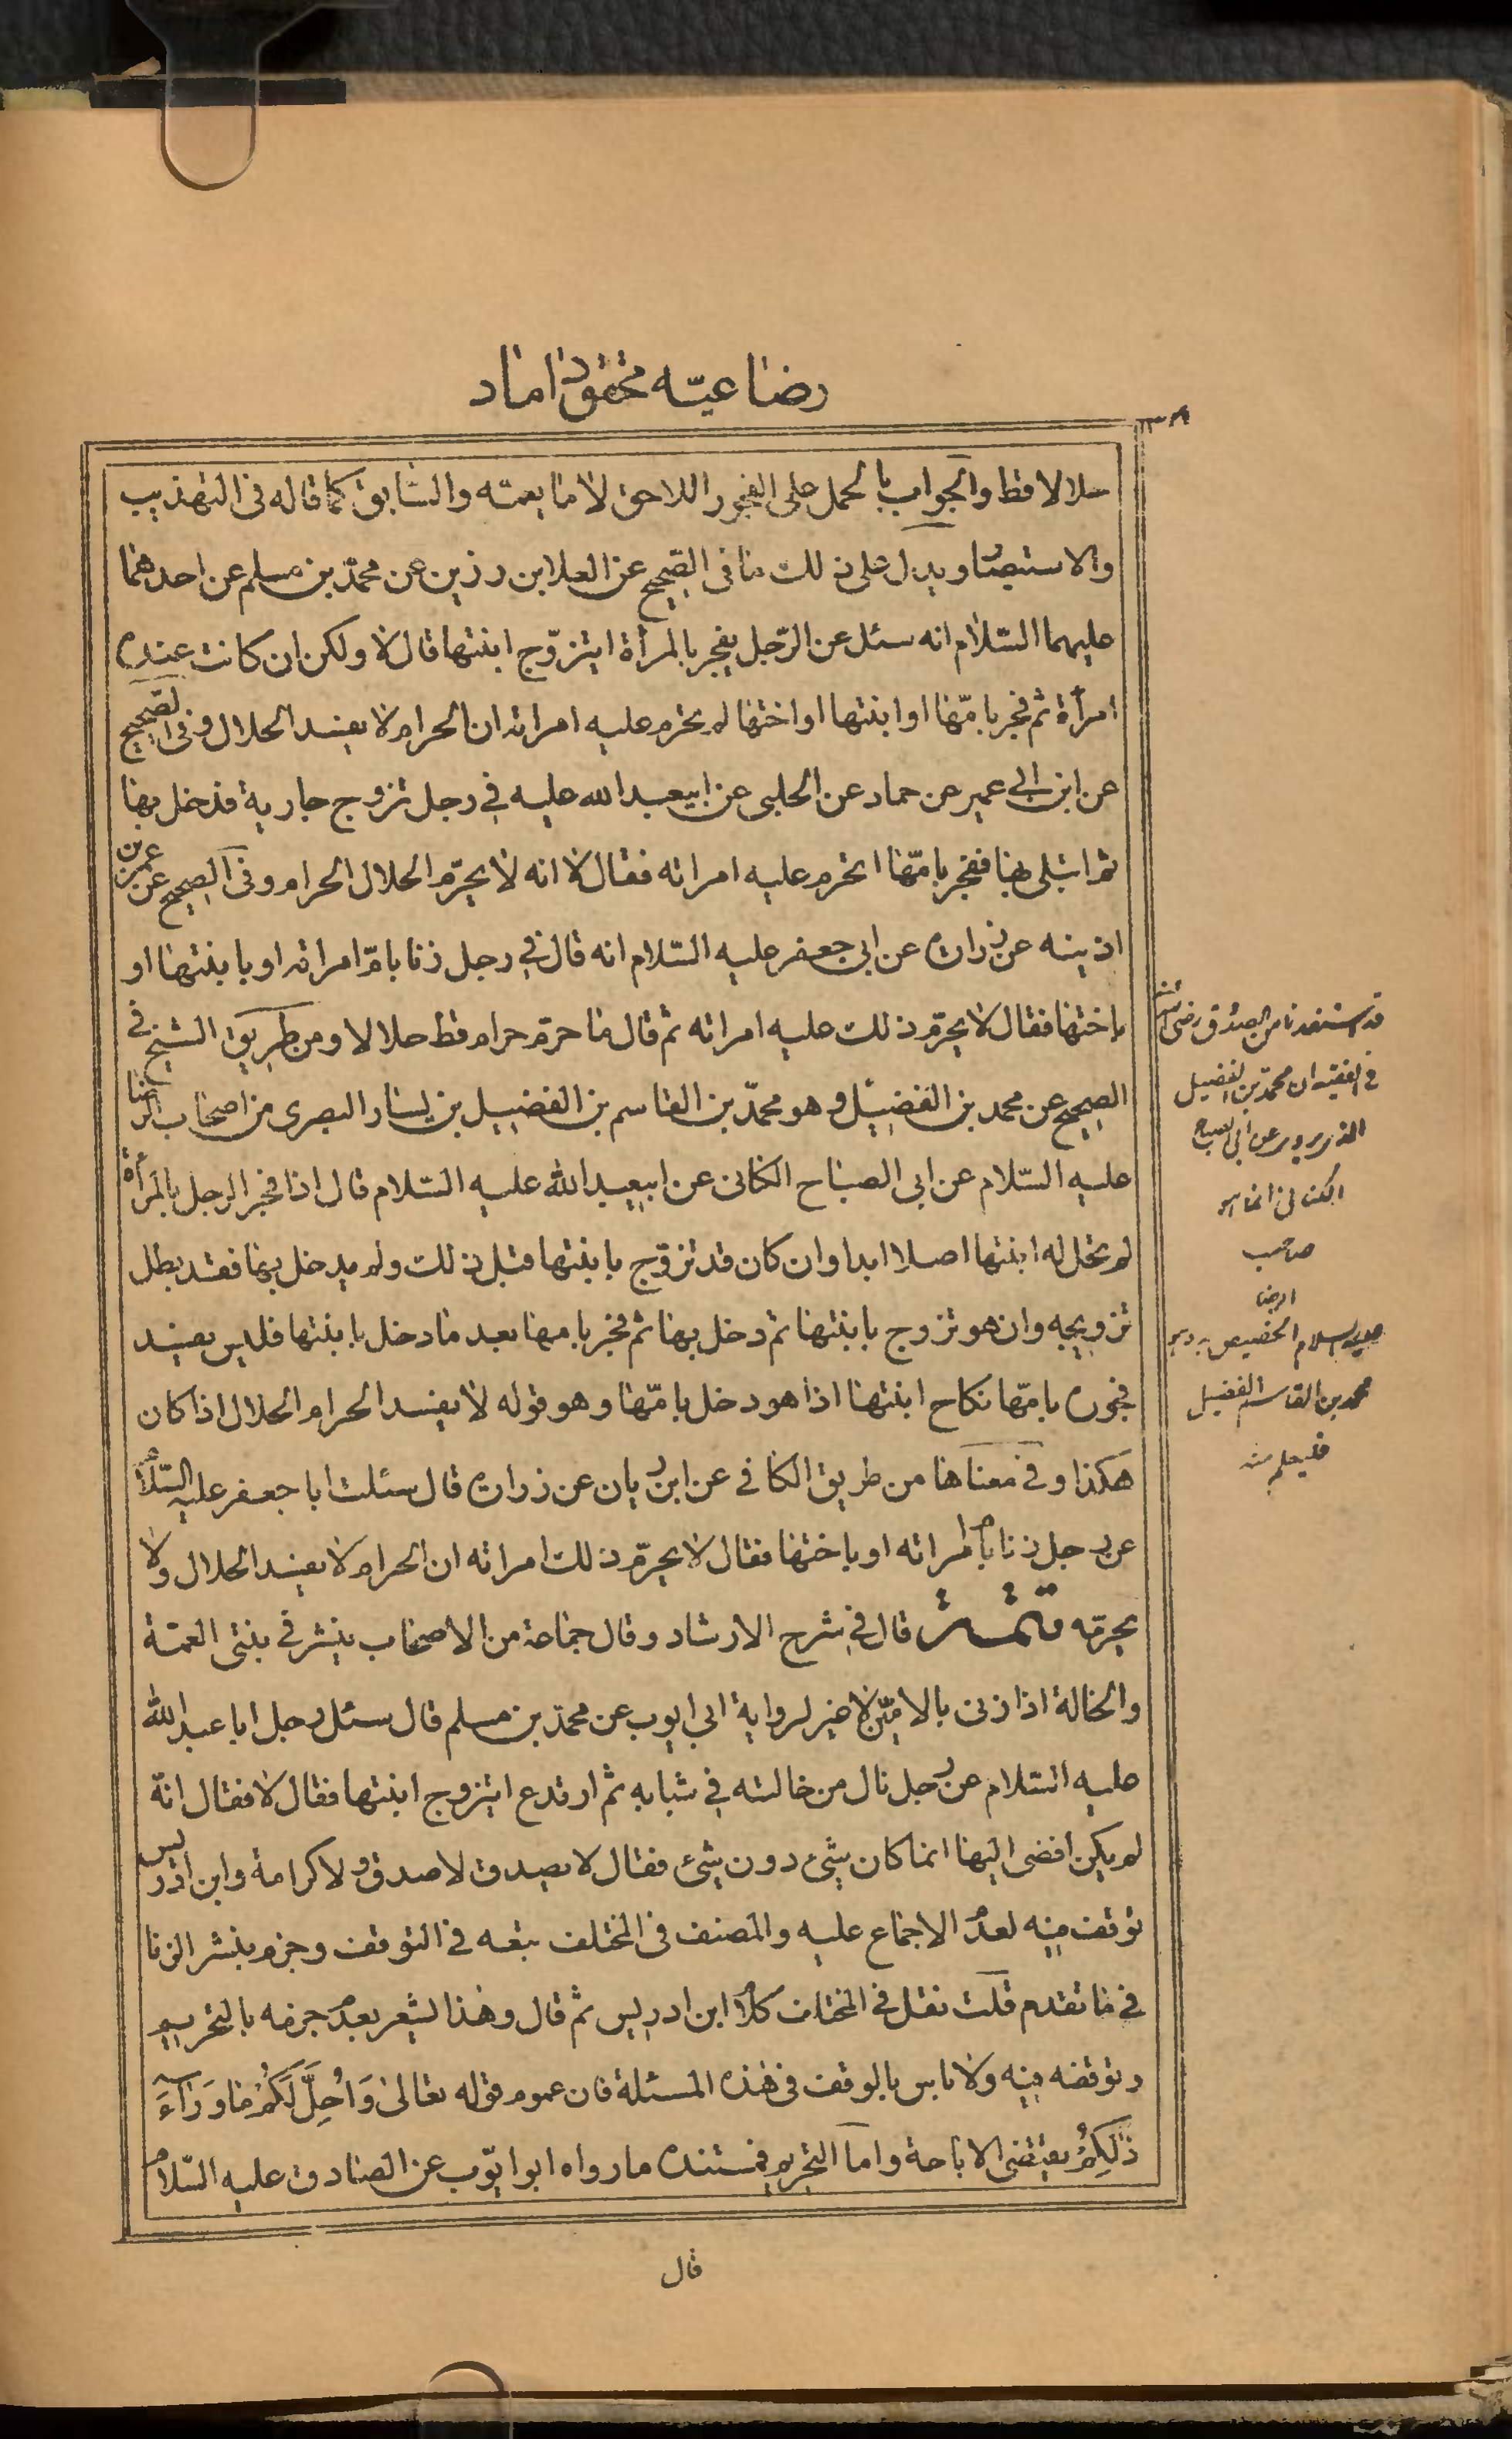 رضاعيّه محقق داماد
حلالا قط والجواب بالحمل على الفجور اللاحق لا ما يعمّه والسّابق كما قاله فى التهذيب
والاستبصار ويدل على ذلك ما فى الصّحيح عن العلا بن رزين عن محمّد بن مسلم عن احدهما
عليهما السّلام انه سئل عن الرّجل يفجر بالمرأة ايتزوّج ابنتها قال لا ولكن ان كانت عنده
امرأة ثم فجر بامّها او ابنتها او اختها لم يحرم عليه امراته ان الحرام لا يفسد الحلال وفى الصّحيح
عن ابن ابى عمير عن حماد عن الحلبى عن ابيعبد الله عليه فى رجل تزوج جارية فدخل بها
ثم ابتلى بها ففجر بامّها اتحرم عليه امراته فقال لا انه لا يحرّم الحلال الحرام وفى الصحيح عن عمر بن
اذينه عن زراره عن ابى جعفر عليه السّلام انه قال فى رجل زنا بامّ امراته او بابنتها او
باختها فقال لا يحرّم ذلك عليه امراته ثم قال ما حرّم حرام قط حلالا ومن طريق الشيخ فى
الصحيح عن محمد بن الفضيل وهو محمّد بن القاسم بن الفضيل بن يسار البصرى من اصحاب الرّضا
عليه السّلام عن ابى الصباح الكنانى عن ابيعبد الله عليه السّلام قال اذا فجر الرجل بالمرأة
لم يحل له ابنتها اصلا ابدا وان كان قد تزوّج بابنتها قبل ذلك ولم يدخل بها فقد بطل
تزويجه وان هو تزوج بابنتها ثم دخل بها ثم فجر بامها بعد ما دخل بابنتها فليس يفسد
فجوره بامّها نكاح ابنتها اذا هو دخل بامّها وهو قوله لا يفسد الحرام الحلال اذا كان
هكذا وفى معناها من طريق الكافى عن ابن رباب عن زراره قال سئلت ابا جعفر عليه السّلام
عن رجل زنا بام امراته او باختها فقال لا يحرّم ذلك امراته ان الحرام لا يفسد الحلال ولا
يحرّمه قال فى شرح الارشاد وقال جماعة من الاصحاب ينشر فى بنتى العمّة
والخالة اذا زنى بالامّين لا غير لرواية ابى ايوب عن محمد بن مسلم قال سئل رجل ابا عبد الله
عليه السّلام عن رجل نال من خالته فى شبابه ثم ارتدع ايتزوج ابنتها فقال لا فقال انّه
لم يكن افضى اليها انما كان شئ دون شئ فقال لا يصدق لا صدق ولا كرامة وابن ادريس
توقف فيه لعدم الاجماع عليه والمصنف فى المختلف تبعه فى التوقف وجزم بنشر الزنا
فى ما تقدم قلت نقل فى المختلف كلام ابن ادريس ثم قال وهذا يشعر بعدم جزمه بالتحريم
وتوقفه فيه ولا باس بالوقف فى هذه المسئلة فان عموم قوله تعالى وَاُحِلَّ لَكُمْ مٰا وَرٰآءَ
ذٰلِكُمْ يقتضى الاباحة وامّا التحريم فمستنده ما رواه ابو ايّوب عن الصادق عليه السّلام
قال
قد استفدنا من الصدوق رضى الله عنه
فى الفقيه ان محمد بن الفضيل
الذى يروى عن ابى الصباح
الكنانى انما هو
صاحب
الرضا
عليه السلام
محمد بن القاسم بن الفضيل
فليعلم منه